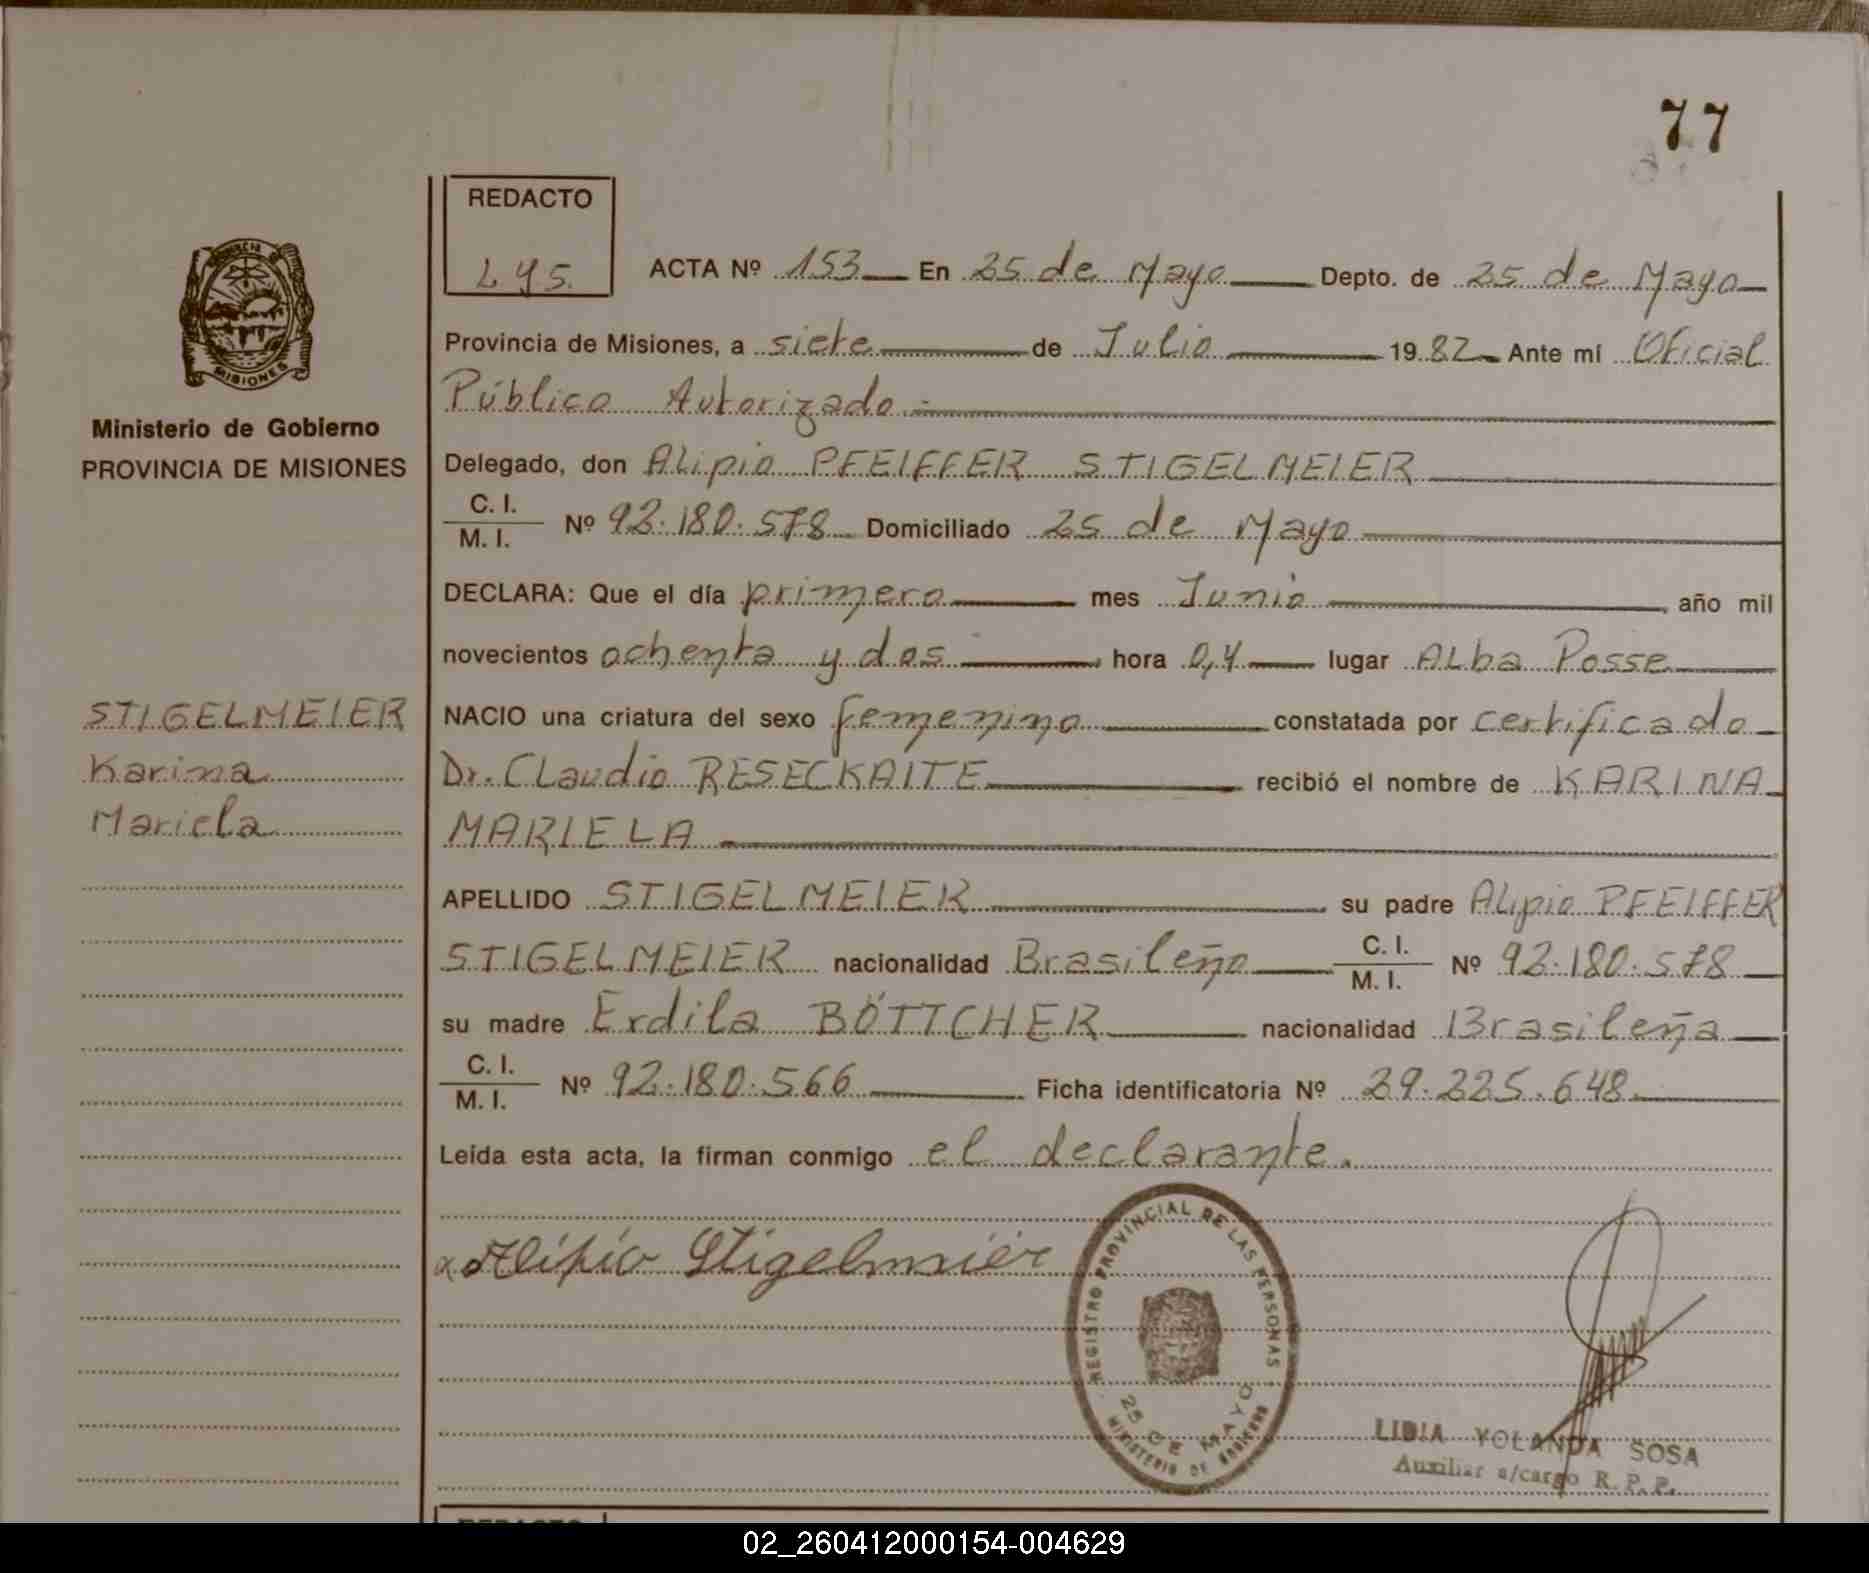 77
REDACTO
L y s.
ACTA Nº 153 En 25 de Mayo Depto. de 25 de Mayo
Provincia de Misiones, a siete de Julio 1982 Ante mí Oficial
Público Autorizado.
MISIONES
Ministerio de Gobierno
PROVINCIA DE MISIONES
Delegado, don Alipio PFEIFFER STIGELMEIER
C. I.
M. I. Nº 92.180.578 Domiciliado 25 de Mayo
DECLARA: Que el día primero mes Junio año mil
novecientos ochenta y dos hora 0,4 lugar Alba Posse
STIGELMEIER
Karina
Mariela
NACIO una criatura del sexo femenino constatada por certificado
Dr. Claudio RESECKAITE recibió el nombre de KARINA
MARIELA
APELLIDO STIGELMEIER su padre Alipio PFEIFFER
STIGELMEIER nacionalidad Brasileño C. I. M. I. Nº 92.180.578
su madre Erdila BÖTTCHER nacionalidad Brasileña
C. I.
M. I. Nº 92.180.566 Ficha identificatoria Nº 29.225.648
Leída esta acta, la firman conmigo el declarante.
Alípio Stigelmeier
REGISTRO PROVINCIAL DE LAS PERSONAS
25 DE MAYO
MINISTERIO DE GOBIERNO
LIDIA YOLANDA SOSA
Auxiliar a/cargo R. P. P.
REDACTO
02_260412000154-004629